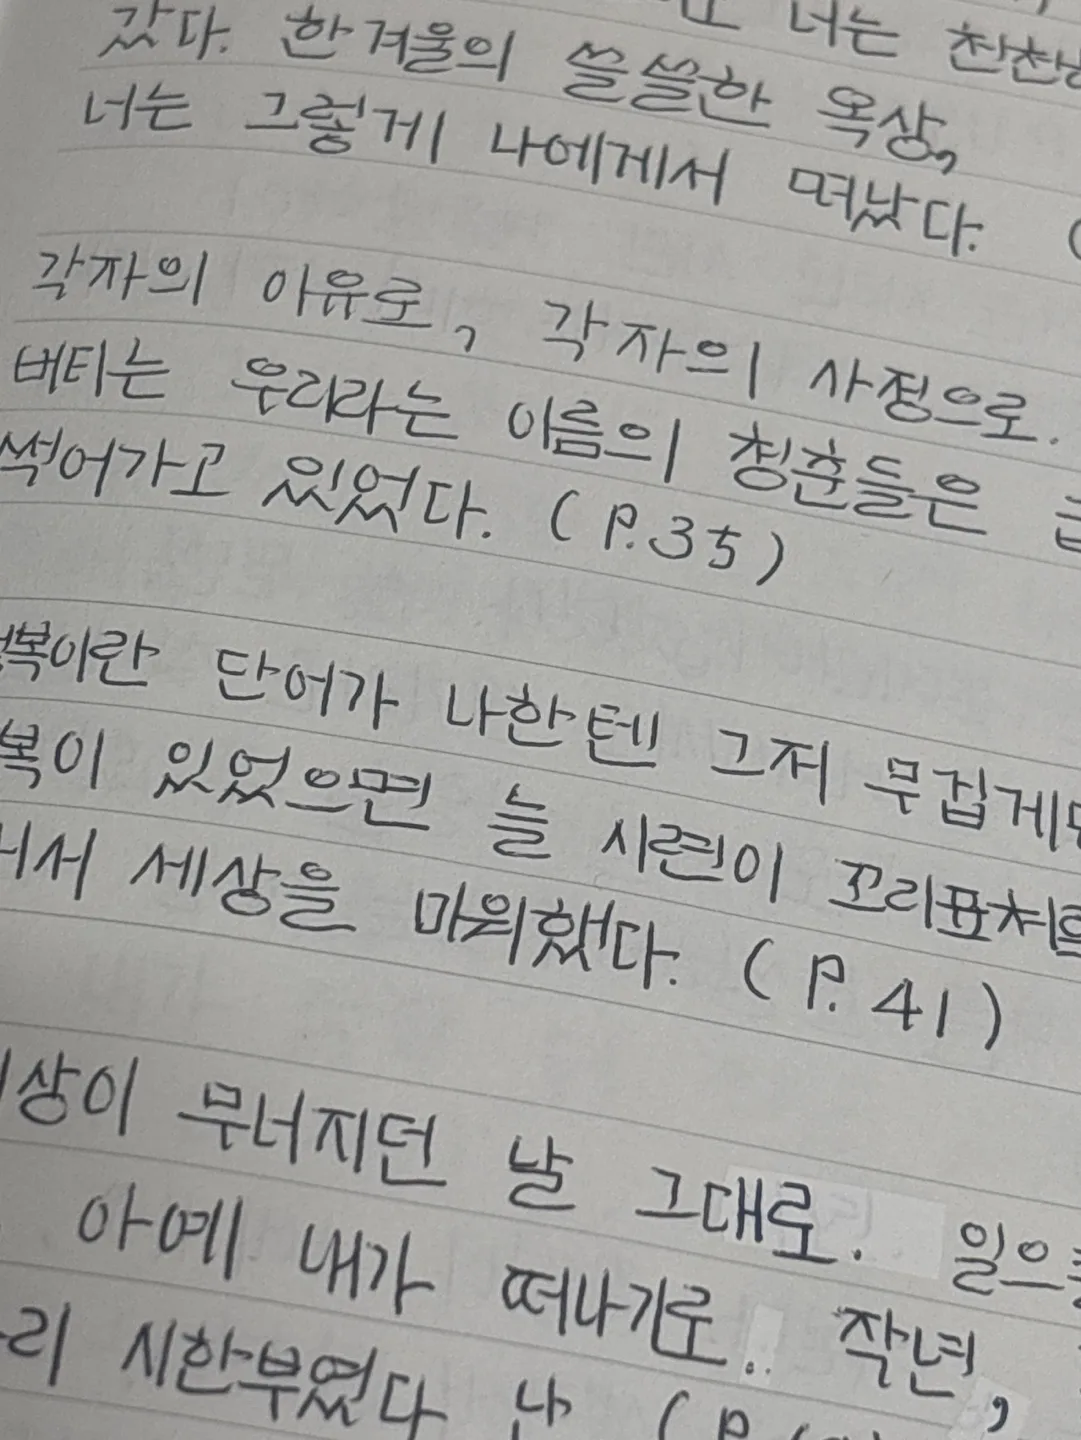 너는
갔다. 한겨울의 쓸쓸한 옥상,
너는 그렇게 나에게서 떠났다. (
각자의 아유로, 각자의 사정으로.
버티는 우리라는 이름의 청춘들은
썩어가고 있었다. (P.35)
단어가 나한텐 그저 무겁게만
복이 있었으면 늘 시련이 꼬리표처럼
세상을 마워했다. (P. 41)
무너지던 날 그대로.
아예 내가 떠나기로.. 작년,
시한부였다 난 (P.